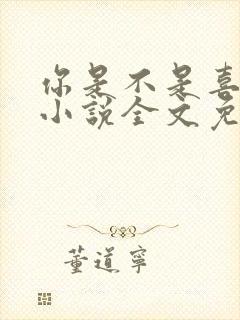 你是不是喜
小说全文免
董道寧